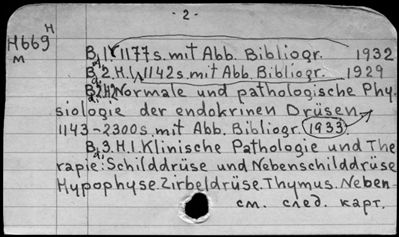 - 2 -
H
H669
м
Bd. 1. 1177 s. mit Abb. Bibliogr. 1932
Bd. 2. H.1. 1142 s. mit Abb. Bibliogr. 1929
Bd. 2. H.2. Normale und pathologische Phy-
siologie der endokrinen Drüsen
1143-2300 s. mit Abb. Bibliogr. 1933
Bd. 3. H.1. Klinische Pathologie und The
rapie: Schilddrüse und Nebenschilddrüse
Hypophyse. Zirbeldrüse. Thymus. Neben-
см. след. карт.